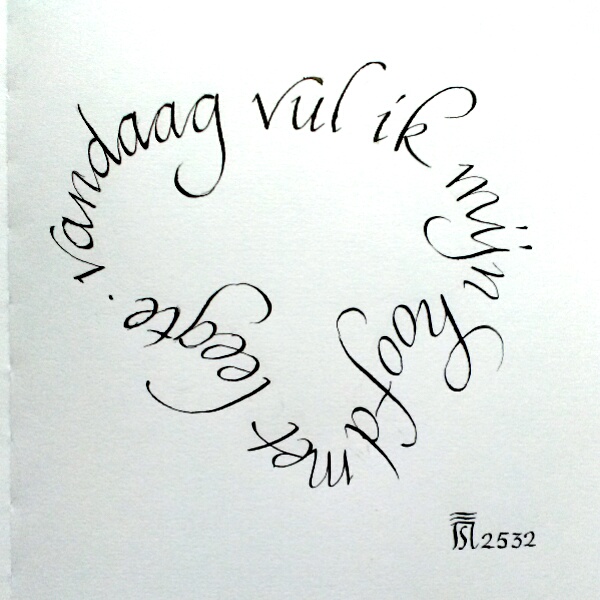 vandaag vul ik mijn hoofd met leegte.
2532